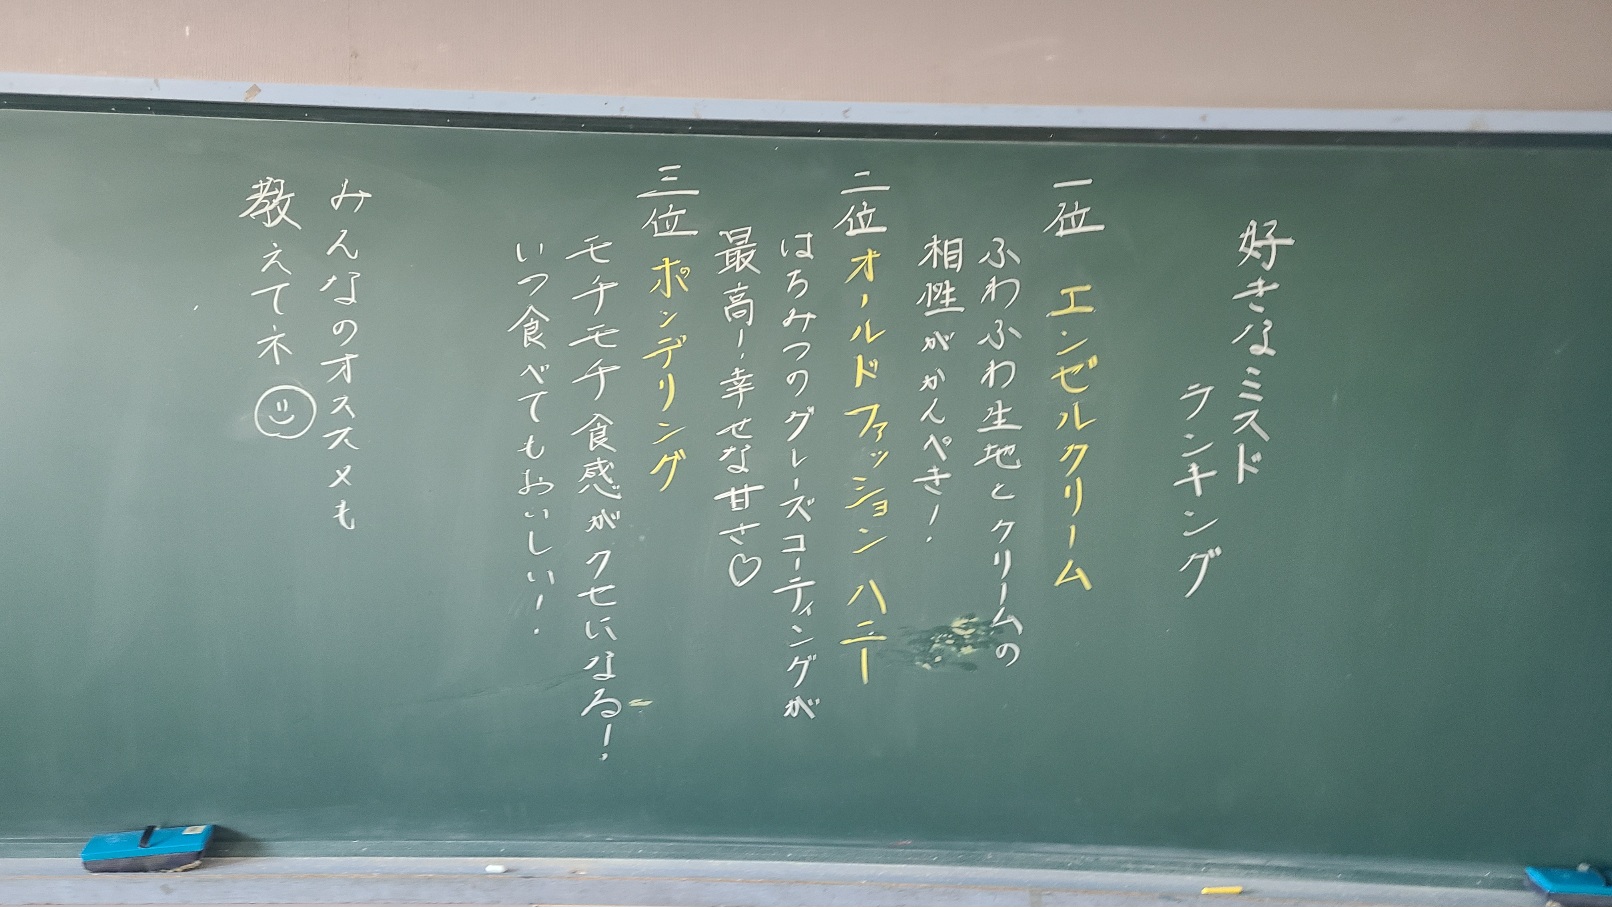 好きなミスド
ランキング
一位 エンゼルクリーム
ふわふわ生地とクリームの
相性がかんぺき!
二位 オールドファッション ハニー
はちみつのグレーズコーティングが
最高!幸せな甘さ♡
三位 ポンデリング
モチモチ食感がクセになる!
いつ食べてもおいしい!
みんなのオススメも
教えてネ